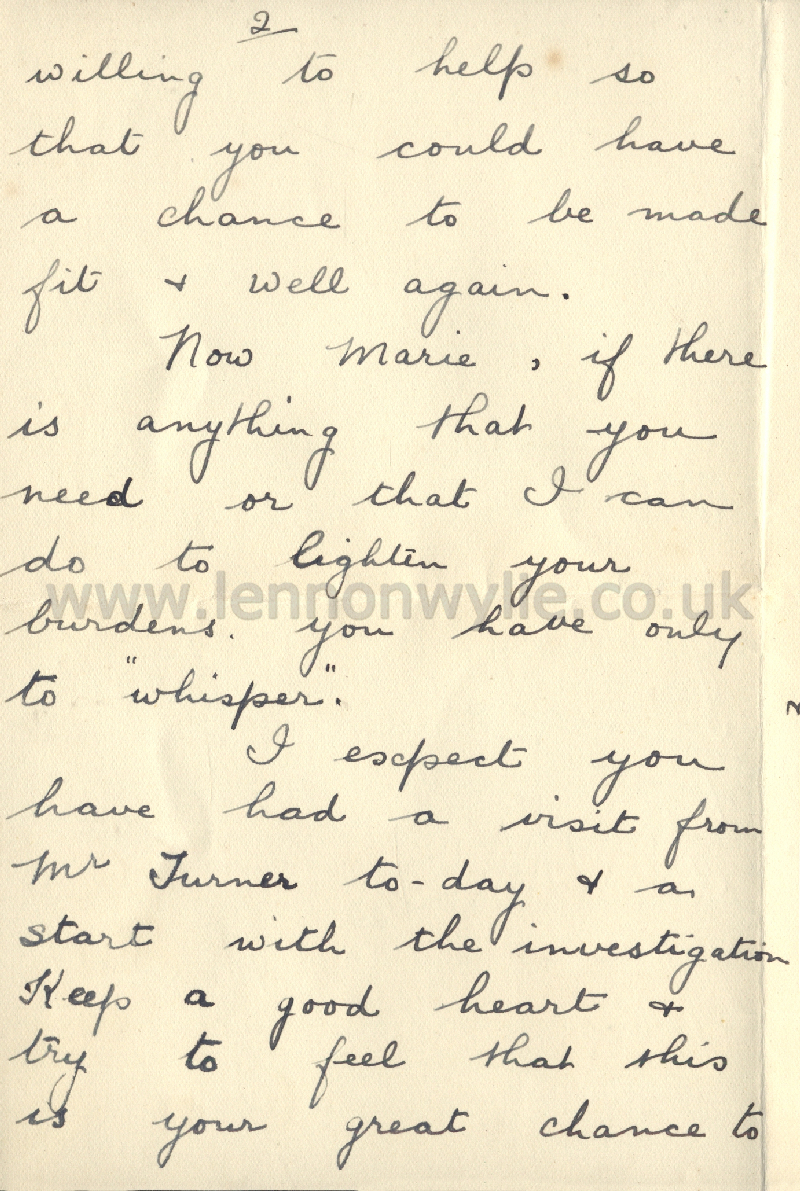 2
willing to help so
that you could have
a chance to be made
fit & well again.
Now Marie, if there
is anything that you
need or that I can
do to lighten your
www.lennonwylie.co.uk
burdens. you have only
to "whisper".
I expect you
have had a visit from
Mr Turner to-day & a
start with the investigation
Keep a good heart &
try to feel that this
is your great chance to